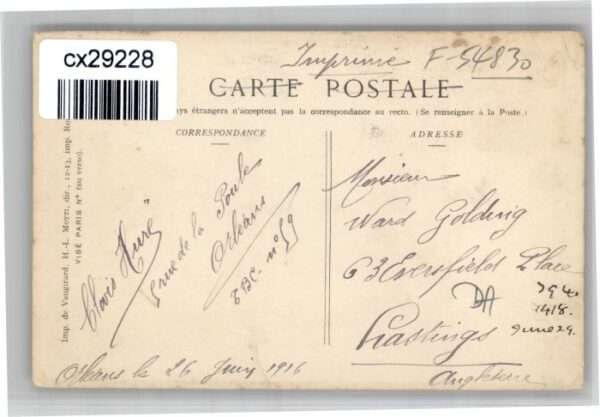 cx29228
Imprimé F-54830
CARTE POSTALE
ays étrangers n'acceptent pas la correspondance au recto. (Se renseigner à la Poste.)
CORRESPONDANCE
ADRESSE
Imp. de Vaugirard, H.-L. MOTTI, dir., 12-13, imp. Ro
VISÉ PARIS N° (au verso).
Clovis Huré
rue de la Poule
Orléans
n° 59
Orléans le 26 Juin 1916
Monsieur
Ward Golding
63 Eversfield Place
Hastings
Angleterre
DA
1418.
June 29.